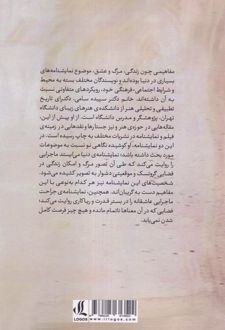 مفاهیمی چون زندگی، مرگ و عشق، موضوع نمایشنامه‌های
بسیاری در دنیا بوده‌اند و نویسندگان مختلف بسته به محیط
و شرایط اجتماعی-فرهنگی خود، رویکردهای متفاوتی نسبت
به آن داشته‌اند. خانم دکتر سپیده سامی، دکترای تاریخ
تطبیقی و تحلیلی هنر از دانشکده‌ی هنرهای زیبای دانشگاه
تهران، پژوهشگر و مدرس دانشگاه است. از او پیش از این،
مقاله‌هایی در حوزه‌ی هنر و نیز جستارها و نقدهایی در زمینه‌ی
فیلم و نمایشنامه در نشریات مختلف به چاپ رسیده است. در
این دو نمایشنامه، او کوشیده نگاهی نو نسبت به موضوعات
مورد بحث داشته باشد؛ نمایشنامه‌ی دنیا می‌بیند ماجرایی
را روایت می‌کند که طی آن تصور مرگ و امکان زندگی در
فضایی گروتسک و موقعیتی دشوار به تصویر کشیده می‌شود.
شخصیت‌های این نمایشنامه نیز هر کدام به‌نوعی با این
مفاهیم دست به گریبان‌اند. همچنین، نمایشنامه‌ی جراحت
ماجرایی عاشقانه را در بستر قدرت و ریاکاری روایت می‌کند؛
فضایی که در آن معناها ناتمام مانده و هیچ چیز فرصت کامل
شدن نمی‌یابد.
LOGOS
irlogos.com